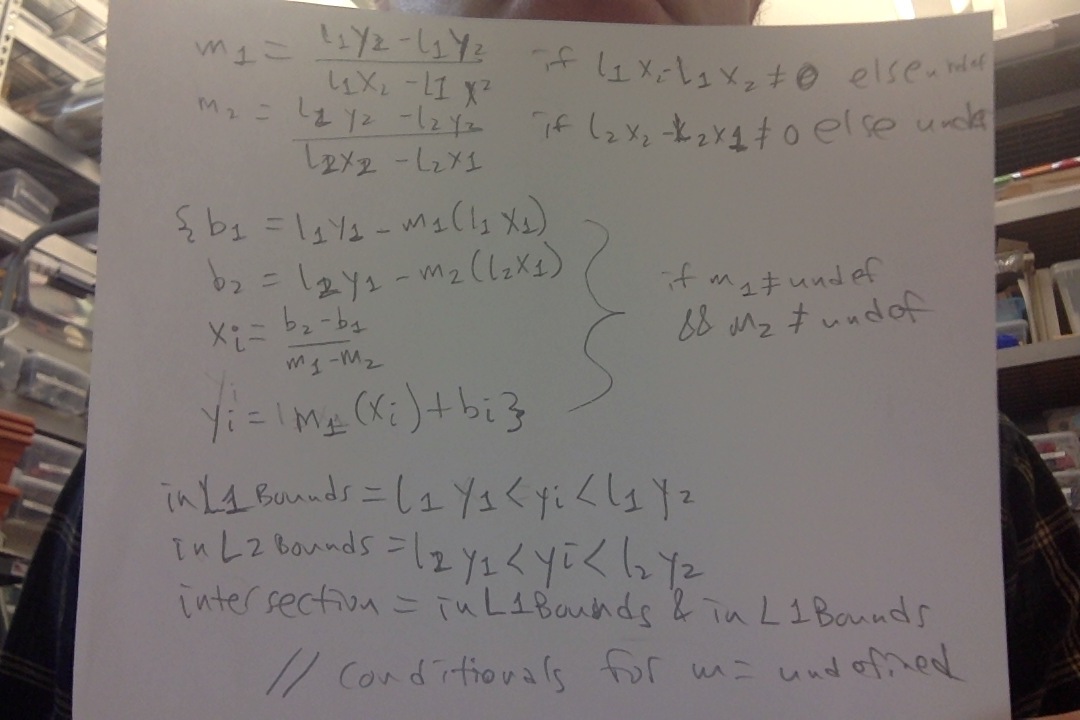 m1 = l1y2 - l1y2 / l1x2 - l1x2 if l1x2 - l1x2 ≠ 0 else undef
m2 = l2y2 - l2y2 / l2x2 - l2x1 if l2x2 - l2x1 ≠ 0 else undef
{b1 = l1y1 - m1(l1x1)
b2 = l2y1 - m2(l2x1)
if m1 ≠ undef
&& m2 ≠ undef
xi = b2-b1 / m1-m2
yi = m1(xi)+bi}
inL1Bounds = l1y1 < yi < l1y2
inL2Bounds = l2y1 < yi < l2y2
intersection = inL1Bounds & inL1Bounds
// Conditionals for m= undefined